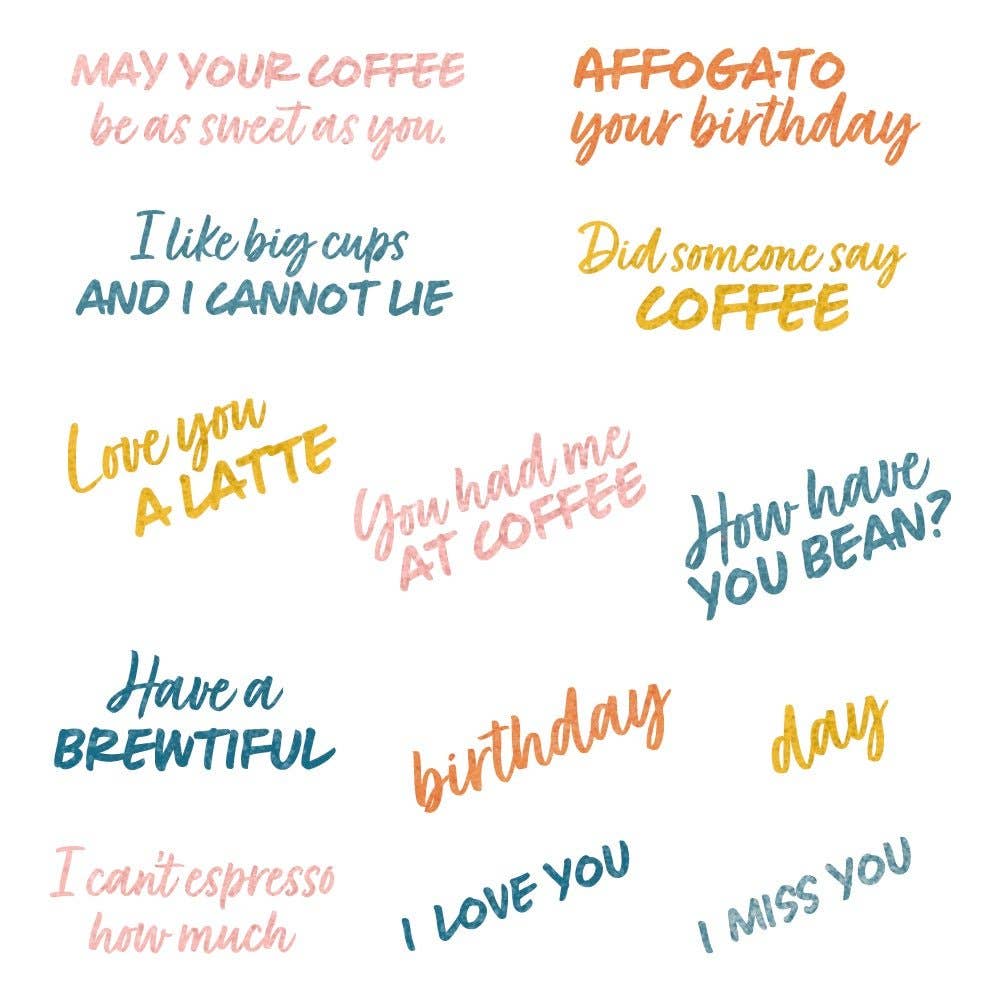 MAY YOUR COFFEE
be as sweet as you.
AFFOGATO
your birthday
I like big cups
AND I CANNOT LIE
Did someone say
COFFEE
Love you
A LATTE
You had me
AT COFFEE
How have
YOU BEAN?
Have a
BREWTIFUL
birthday
day
I can't espresso
how much
I LOVE YOU
I MISS YOU